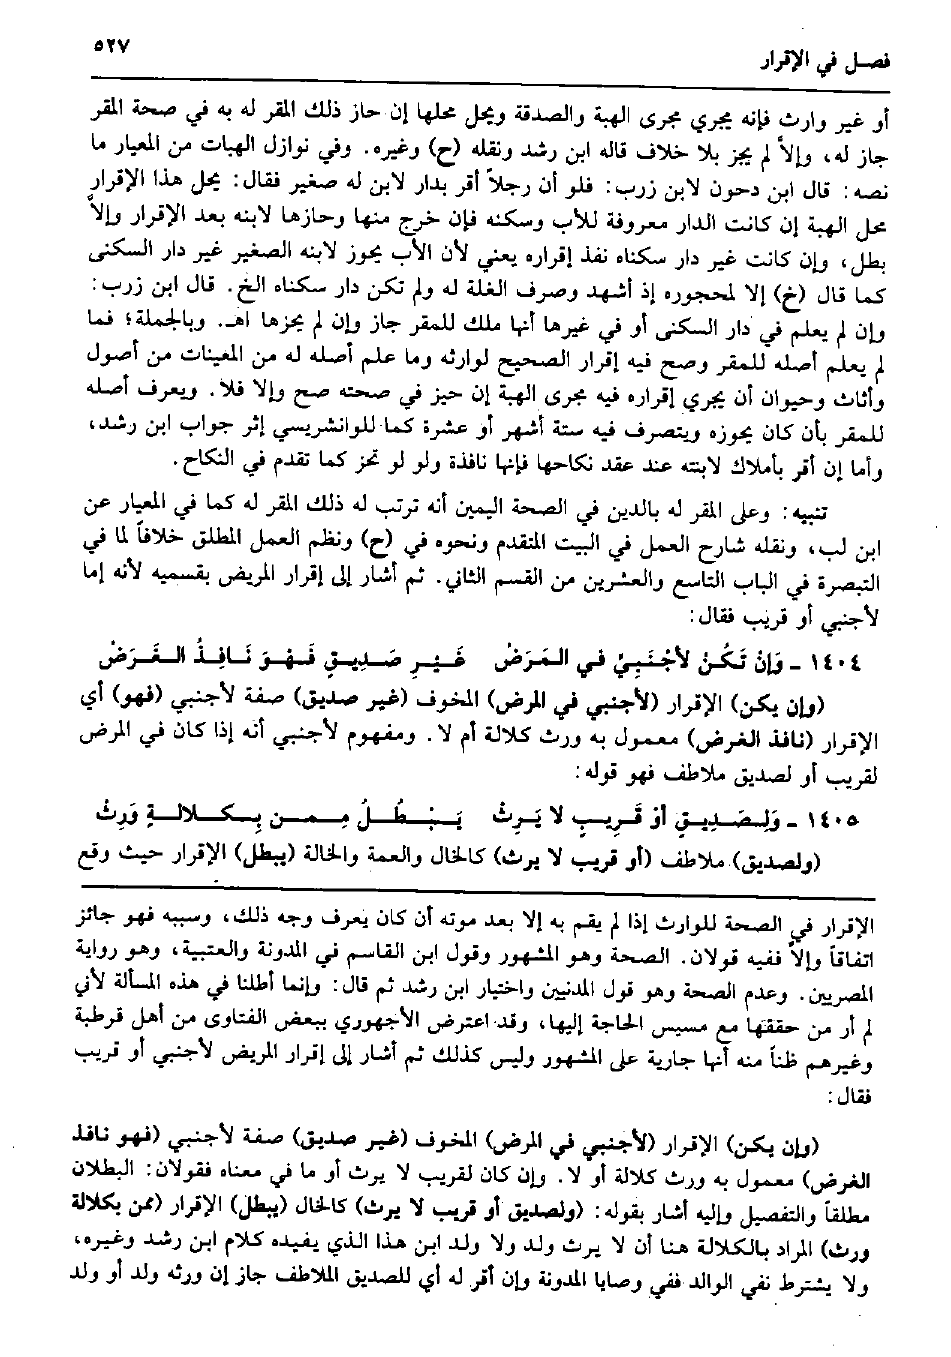 فصل في الإقرار
٥٢٧
أو غير وارث فإنه يجري مجرى الهبة والصدقة ويحل محلها إن حاز ذلك المقر له به في صحة المقر
جاز له، وإلاَّ لم يجز بلا خلاف قاله ابن رشد ونقله (ح) وغيره. وفي نوازل الهبات من المعيار ما
نصه: قال ابن دحون لابن زرب: فلو أن رجلاً أقر بدار لابن له صغير فقال: يحل هذا الإقرار
محل الهبة إن كانت الدار معروفة للأب وسكنه فإن خرج منها وحازها لابنه بعد الإقرار وإلاَّ
بطل، وإن كانت غير دار سكناه نفذ إقراره يعني لأن الأب يحوز لابنه الصغير غير دار السكنى
كما قال (خ) إلا لمحجوره إذ أشهد وصرف الغلة له ولم تكن دار سكناه الخ. قال ابن زرب:
وإن لم يعلم في دار السكنى أو في غيرها أنها ملك للمقر جاز وإن لم يحزها اهـ. وبالجملة؛ فما
لم يعلم أصله للمقر وصح فيه إقرار الصحيح لوارثه وما علم أصله له من المعينات من أصول
وأثاث وحيوان أن يجري إقراره فيه مجرى الهبة إن حيز في صحته صح وإلا فلا. ويعرف أصله
للمقر بأن كان يحوزه ويتصرف فيه ستة أشهر أو عشرة كما للوانشريسي إثر جواب ابن رشد،
وأما إن أقر بأملاك لابنته عند عقد نكاحها فإنها نافذة ولو لو تحز كما تقدم في النكاح.
تنبيه: وعلى المقر له بالدين في الصحة اليمين أنه ترتب له ذلك المقر له كما في المعيار عن
ابن لب، ونقله شارح العمل في البيت المتقدم ونحوه في (ح) ونظم العمل المطلق خلافاً لما في
التبصرة في الباب التاسع والعشرين من القسم الثاني. ثم أشار إلى إقرار المريض بقسميه لأنه إما
لأجنبي أو قريب فقال:
١٤٠٤ ـ وَإنْ تَكُنْ لأَجْنَبِيّ في المَرَضْ غَيْرِ صَدِيقٍ فَهْوَ نَافِذُ الغَرَضْ
(وإن يكن) الإقرار (لأجنبي في المرض) المخوف (غير صديق) صفة لأجنبي (فهو) أي
الإقرار (نافذ الغرض) معمول به ورث كلالة أم لا. ومفهوم لأجنبي أنه إذا كان في المرض
لقريب أو لصديق ملاطف فهو قوله:
١٤٠٥ ـ وَلِصَدِيقٍ أوْ قَرِيبٍ لا يَرِثْ يَبْطُلُ مِمَن بِكَلالةٍ وَرِثْ
(ولصديق) ملاطف (أو قريب لا يرث) كالخال والعمة والخالة (يبطل) الإقرار حيث وقع
الإقرار في الصحة للوارث إذا لم يقم به إلا بعد موته أن كان يعرف وجه ذلك، وسببه فهو جائز
اتفاقاً وإلاَّ ففيه قولان. الصحة وهو المشهور وقول ابن القاسم في المدونة والعتبية، وهو رواية
المصريين. وعدم الصحة وهو قول المدنيين واختيار ابن رشد ثم قال: وإنما أطلنا في هذه المسألة لأني
لم أر من حققها مع مسيس الحاجة إليها، وقد اعترض الأجهوري ببعض الفتاوى من أهل قرطبة
وغيرهم ظناً منه أنها جارية على المشهور وليس كذلك ثم أشار إلى إقرار المريض لأجنبي أو قريب
فقال:
(وإن يكن) الإقرار (لأجنبي في المرض) المخوف (غير صديق) صفة لأجنبي (فهو نافذ
الغرض) معمول به ورث كلالة أو لا. وإن كان لقريب لا يرث أو ما في معناه فقولان: البطلان
مطلقاً والتفصيل وإليه أشار بقوله: (ولصديق أو قريب لا يرث) كالخال (يبطل) الإقرار (ممن بكلالة
ورث) المراد بالكلالة هنا أن لا يرث ولد ولا ولد ابن هذا الذي يفيده كلام ابن رشد وغيره،
ولا يشترط نفي الوالد ففي وصايا المدونة وإن أقر له أي للصديق الملاطف جاز إن ورثه ولد أو ولد